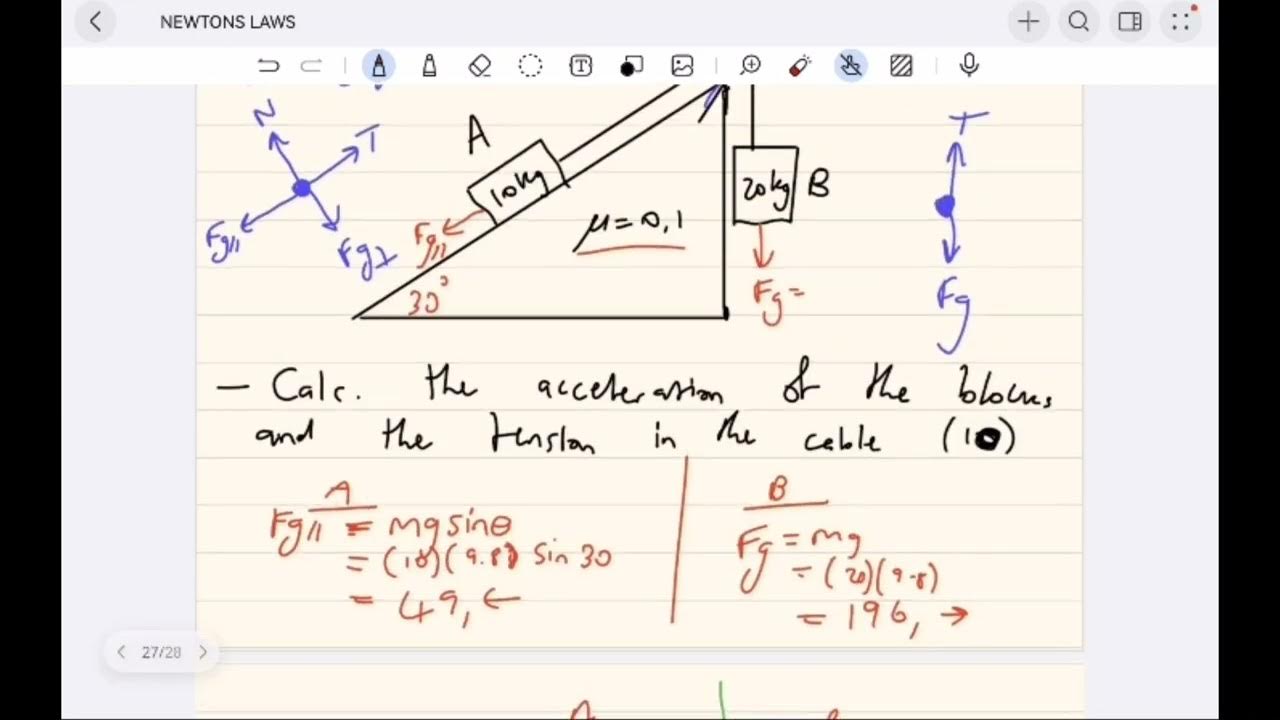 NEWTONS LAWS
N
T
A
10kg
20kg B
T
Fg//
Fg⊥
Fg//
μ = 0,1
30°
Fg =
Fg
- Calc. the acceleration of the blocks
and the tension in the cable (10)
A
Fg// = mg sinθ
= (10)(9.8) sin 30
= 49, ←
B
Fg = mg
= (20)(9.8)
= 196, →
27/28